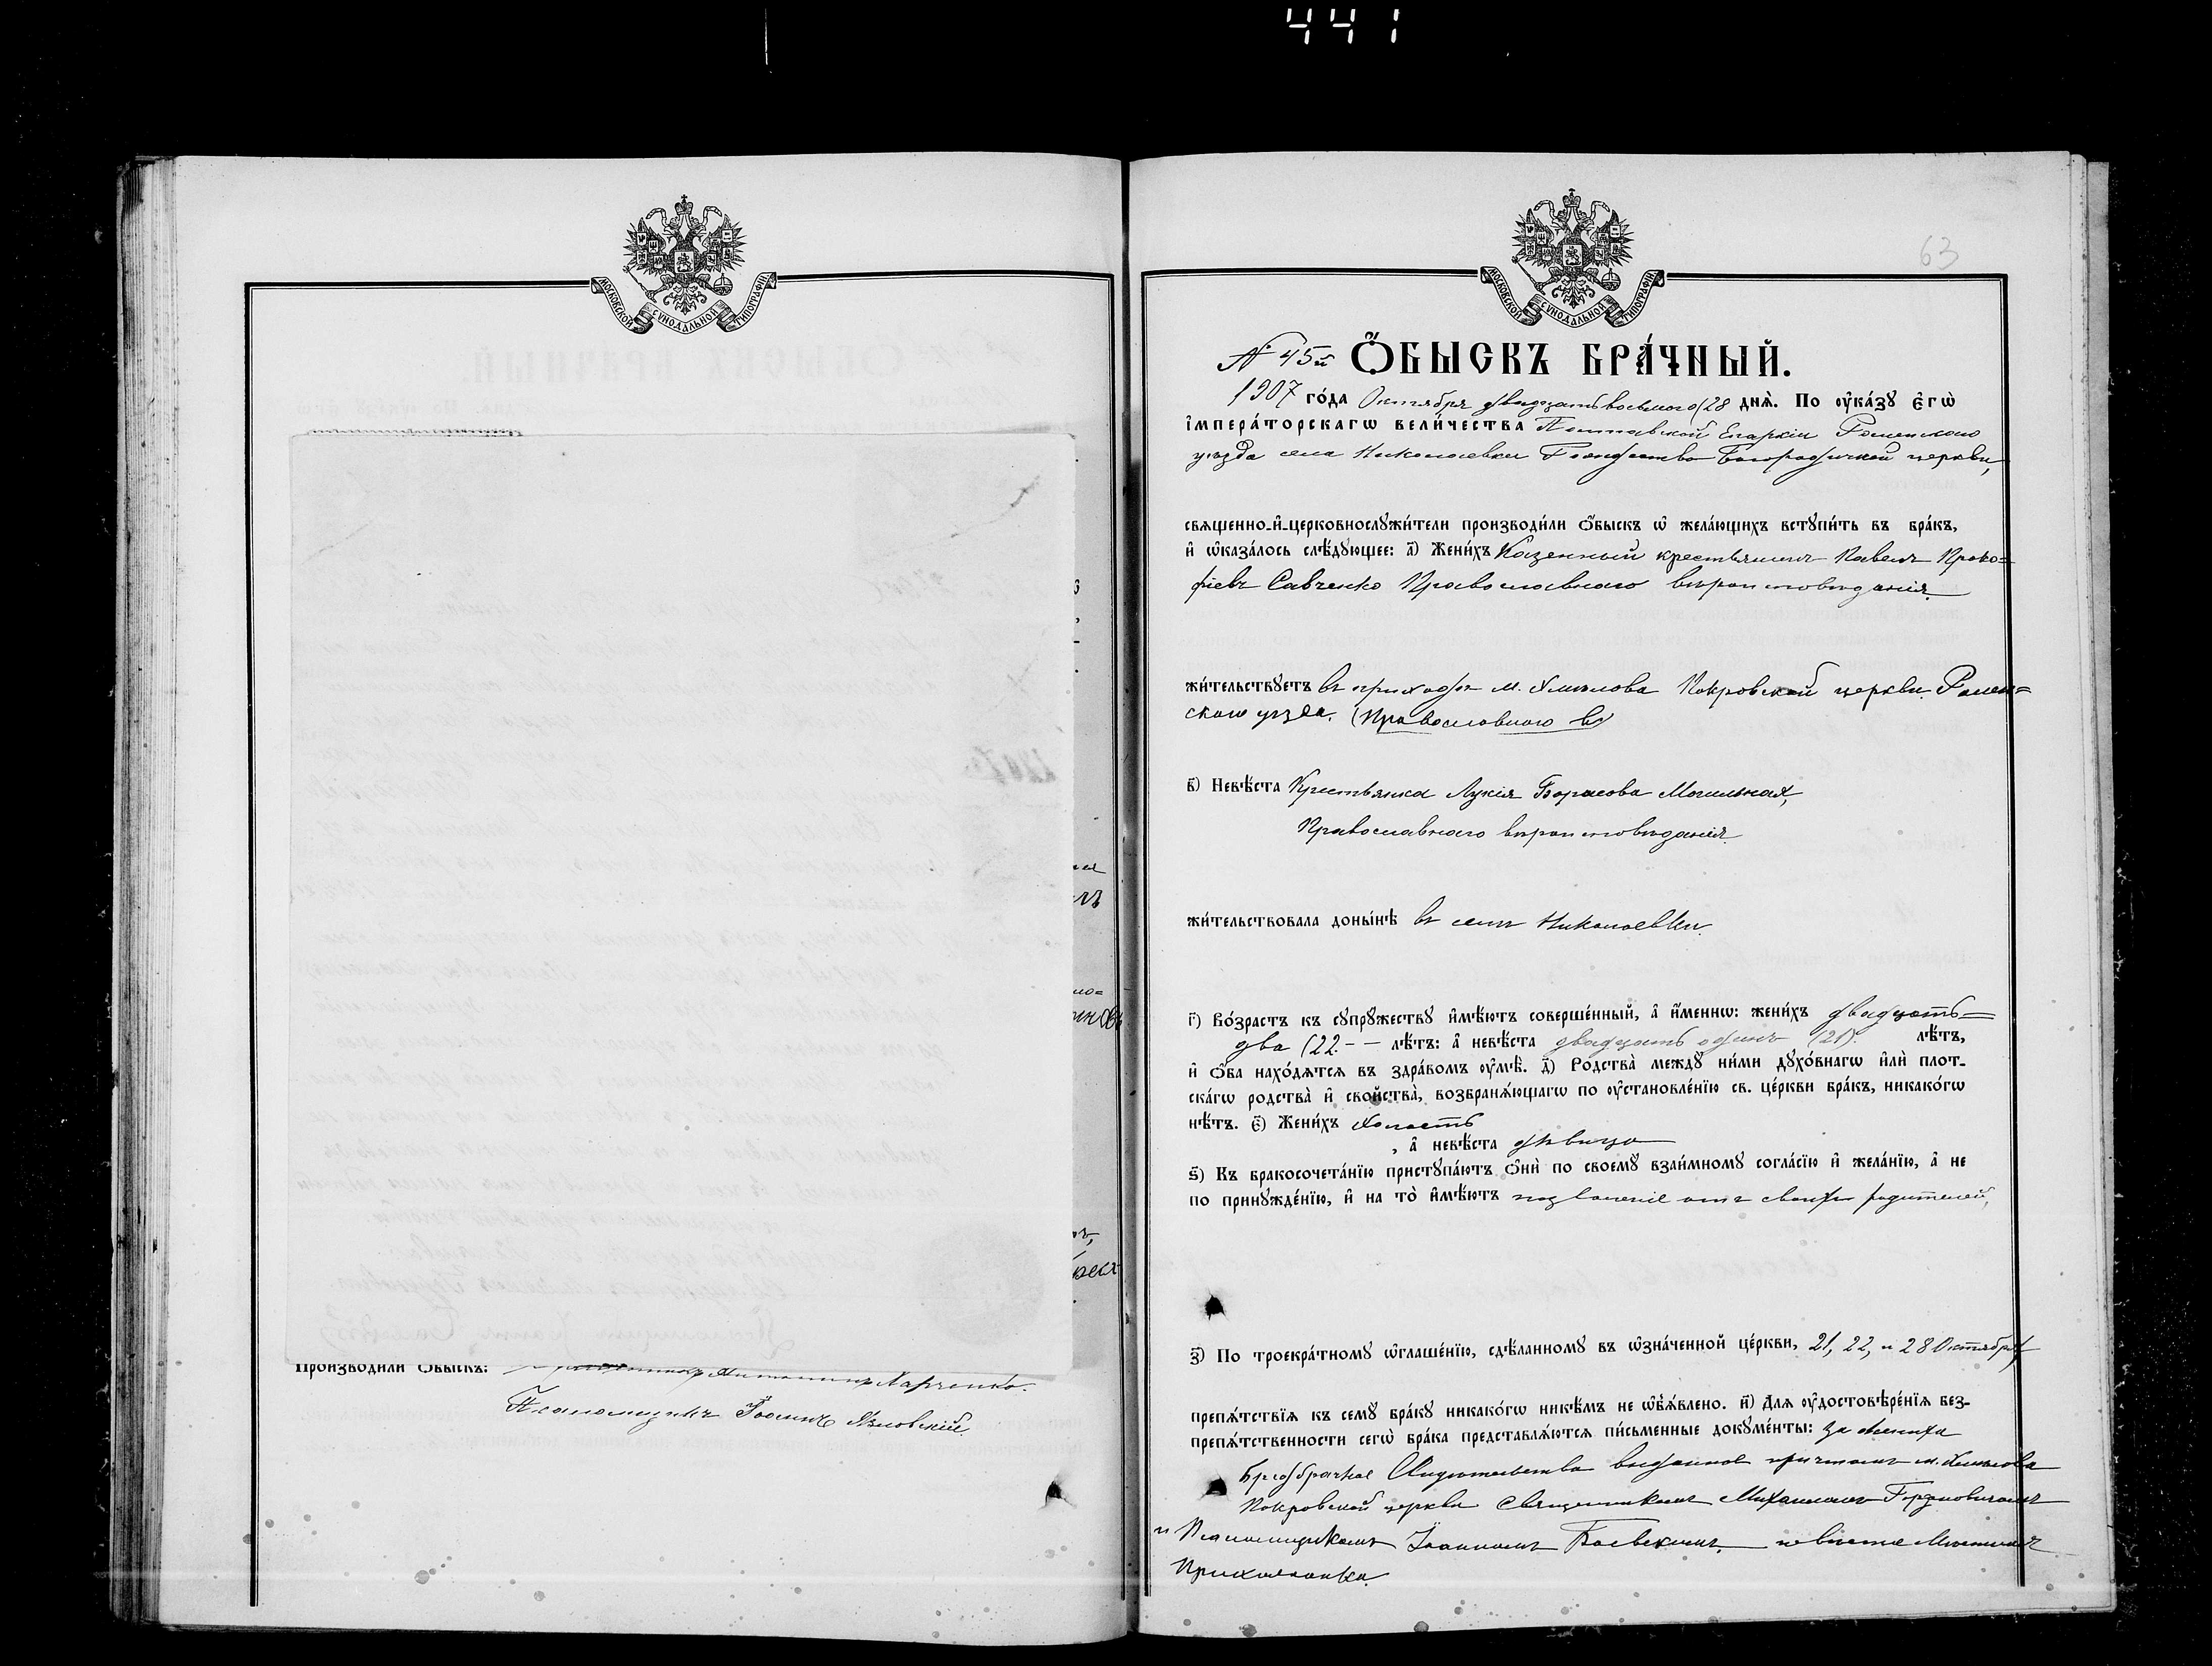 441
МОСКОВСКОЙ СУНОДАЛЬНОЙ ТИПОГРАФІИ
Производили Обыскъ: Антонинъ Харченко.
Псаломщикъ Іоаннъ
63
МОСКОВСКОЙ СУНОДАЛЬНОЙ ТИПОГРАФІИ
№ 45й Ѻ҆БЫСКЪ БРА́ЧНЫЙ.
1907 го́да Октября двадцатьвосьмого (28 днѧ̀. По ᲂу҆ка́зꙋ є҆гѡ̀
і҆мпера́торскагѡ вели́чества Полтавской Епархіи Роменского
уѣзда села Николаевки Рождество Богородичной церкви,
свѧщенно-и҆-церковнослꙋжи́тели производи́ли ѻ҆быскъ ѡ҆ жела́ющихъ встꙋпи́ть въ бра́къ,
и҆ ѡ҆каза́лось слѣ́дꙋющее: а҃) Жени́хъ Казенный крестьянинъ Павелъ Проко=
фіевъ Савченко Православнаго вѣроисповѣданія.
жи́тельствꙋетъ въ приходѣ м. Хмѣлова Покровской церкви Ромен=
ского уѣзда. (Православного в)
в҃) Невѣ́ста Крестьянка Лукія Борисова Могильная,
Православнаго вѣроисповѣданія.
жи́тельствовала доны́нѣ въ селѣ Николаевки.
г҃) Во́зрастъ къ сꙋпрꙋ́жествꙋ и҆мѣ́ютъ соверше́нный, а҆ и҆́меннѡ: жени́хъ двадцать=
два (22.- - лѣ́тъ: а҆ невѣ́ста двадцать одинъ (21). лѣ́тъ,
и҆ ѻ҆́ба нахо́дѧтсѧ въ здра́вомъ ᲂу҆мѣ̀. д҃) Родства̀ междꙋ̀ ни́ми дꙋхо́внагѡ и҆лѝ плот-
ска́гѡ родства̀ и҆ свойства̀, возбранѧ́ющагѡ по ᲂу҆становле́нїю св. це́ркви бра́къ, никако́гѡ
нѣ́тъ. є҃) Жени́хъ холостъ
, а҆ невѣ́ста дѣвица
ѕ҃) Къ бракосочета́нїю пристꙋпа́ютъ ѻ҆нѝ по своемꙋ̀ взаи́мномꙋ согла́сїю и҆ жела́нїю, а҆ не
по принꙋжде́нїю, и҆ на то̀ и҆мѣ́ютъ позволеніе отъ своихъ родителей,
з҃) По троекра́тномꙋ ѡ҆глаше́нїю, сдѣ́ланномꙋ въ ѡ҆зна́ченной це́ркви, 21, 22, и 28 Октября
препѧ́тствїѧ къ семꙋ̀ бра́кꙋ никако́гѡ никѣ́мъ не ѡ҆б̾ѧ́влено. и҃) Длѧ ᲂу҆достовѣре́нїѧ без-
препѧ́тственности сегѡ̀ бра́ка представлѧ́ютсѧ пи́сьменные докꙋме́нты: за жениха
Предбрачное Свидѣтельство выданное причтомъ м. Хмѣлова
Покровской церкви Священникомъ Михаиломъ
и Псаломщикомъ Іоанномъ невѣста Мѣстная
Прихожанка.